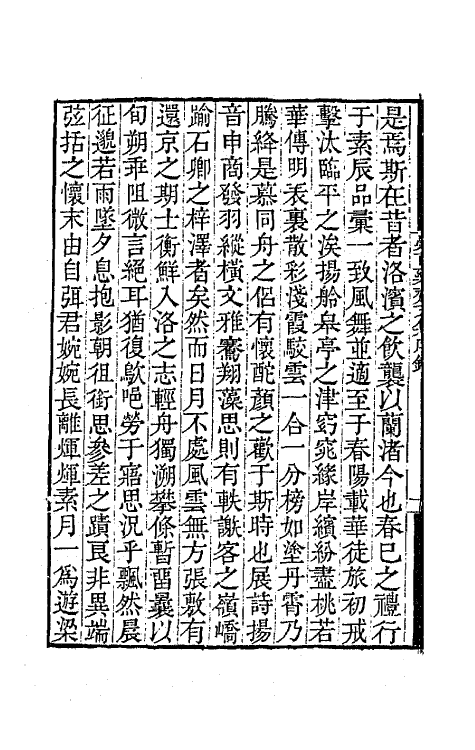 是焉斯在昔者洛濱之飲襲以蘭渚今也春巳之禮行
于素辰品彙一致風舞並適至于春陽載華徒旅初戒
擊汰臨平之涘揚舲皋亭之津窈窕緣岸繽紛盡桃若
華傳明表裏散彩淺霞駮雲一合一分榜如塗丹霄乃
騰絳是慕同舟之侶有懷酡顏之歡于斯時也展詩揚
音申商發羽縱橫文雅騫翔藻思則有軼謝客之嶺嶠
踰石卿之梓澤者矣然而日月不處風雲無方張敷有
還京之期士衡鮮入洛之志輕舟獨溯攀條暫畱曩以
旬朔乖阻微言絕耳猶復歔唈勞于寤思況乎飄然晨
征邈若雨墜夕息抱影朝徂銜思參差之蹟良非異端
弦括之懷末由自弭君婉婉長離煇煇素月一爲遊梁